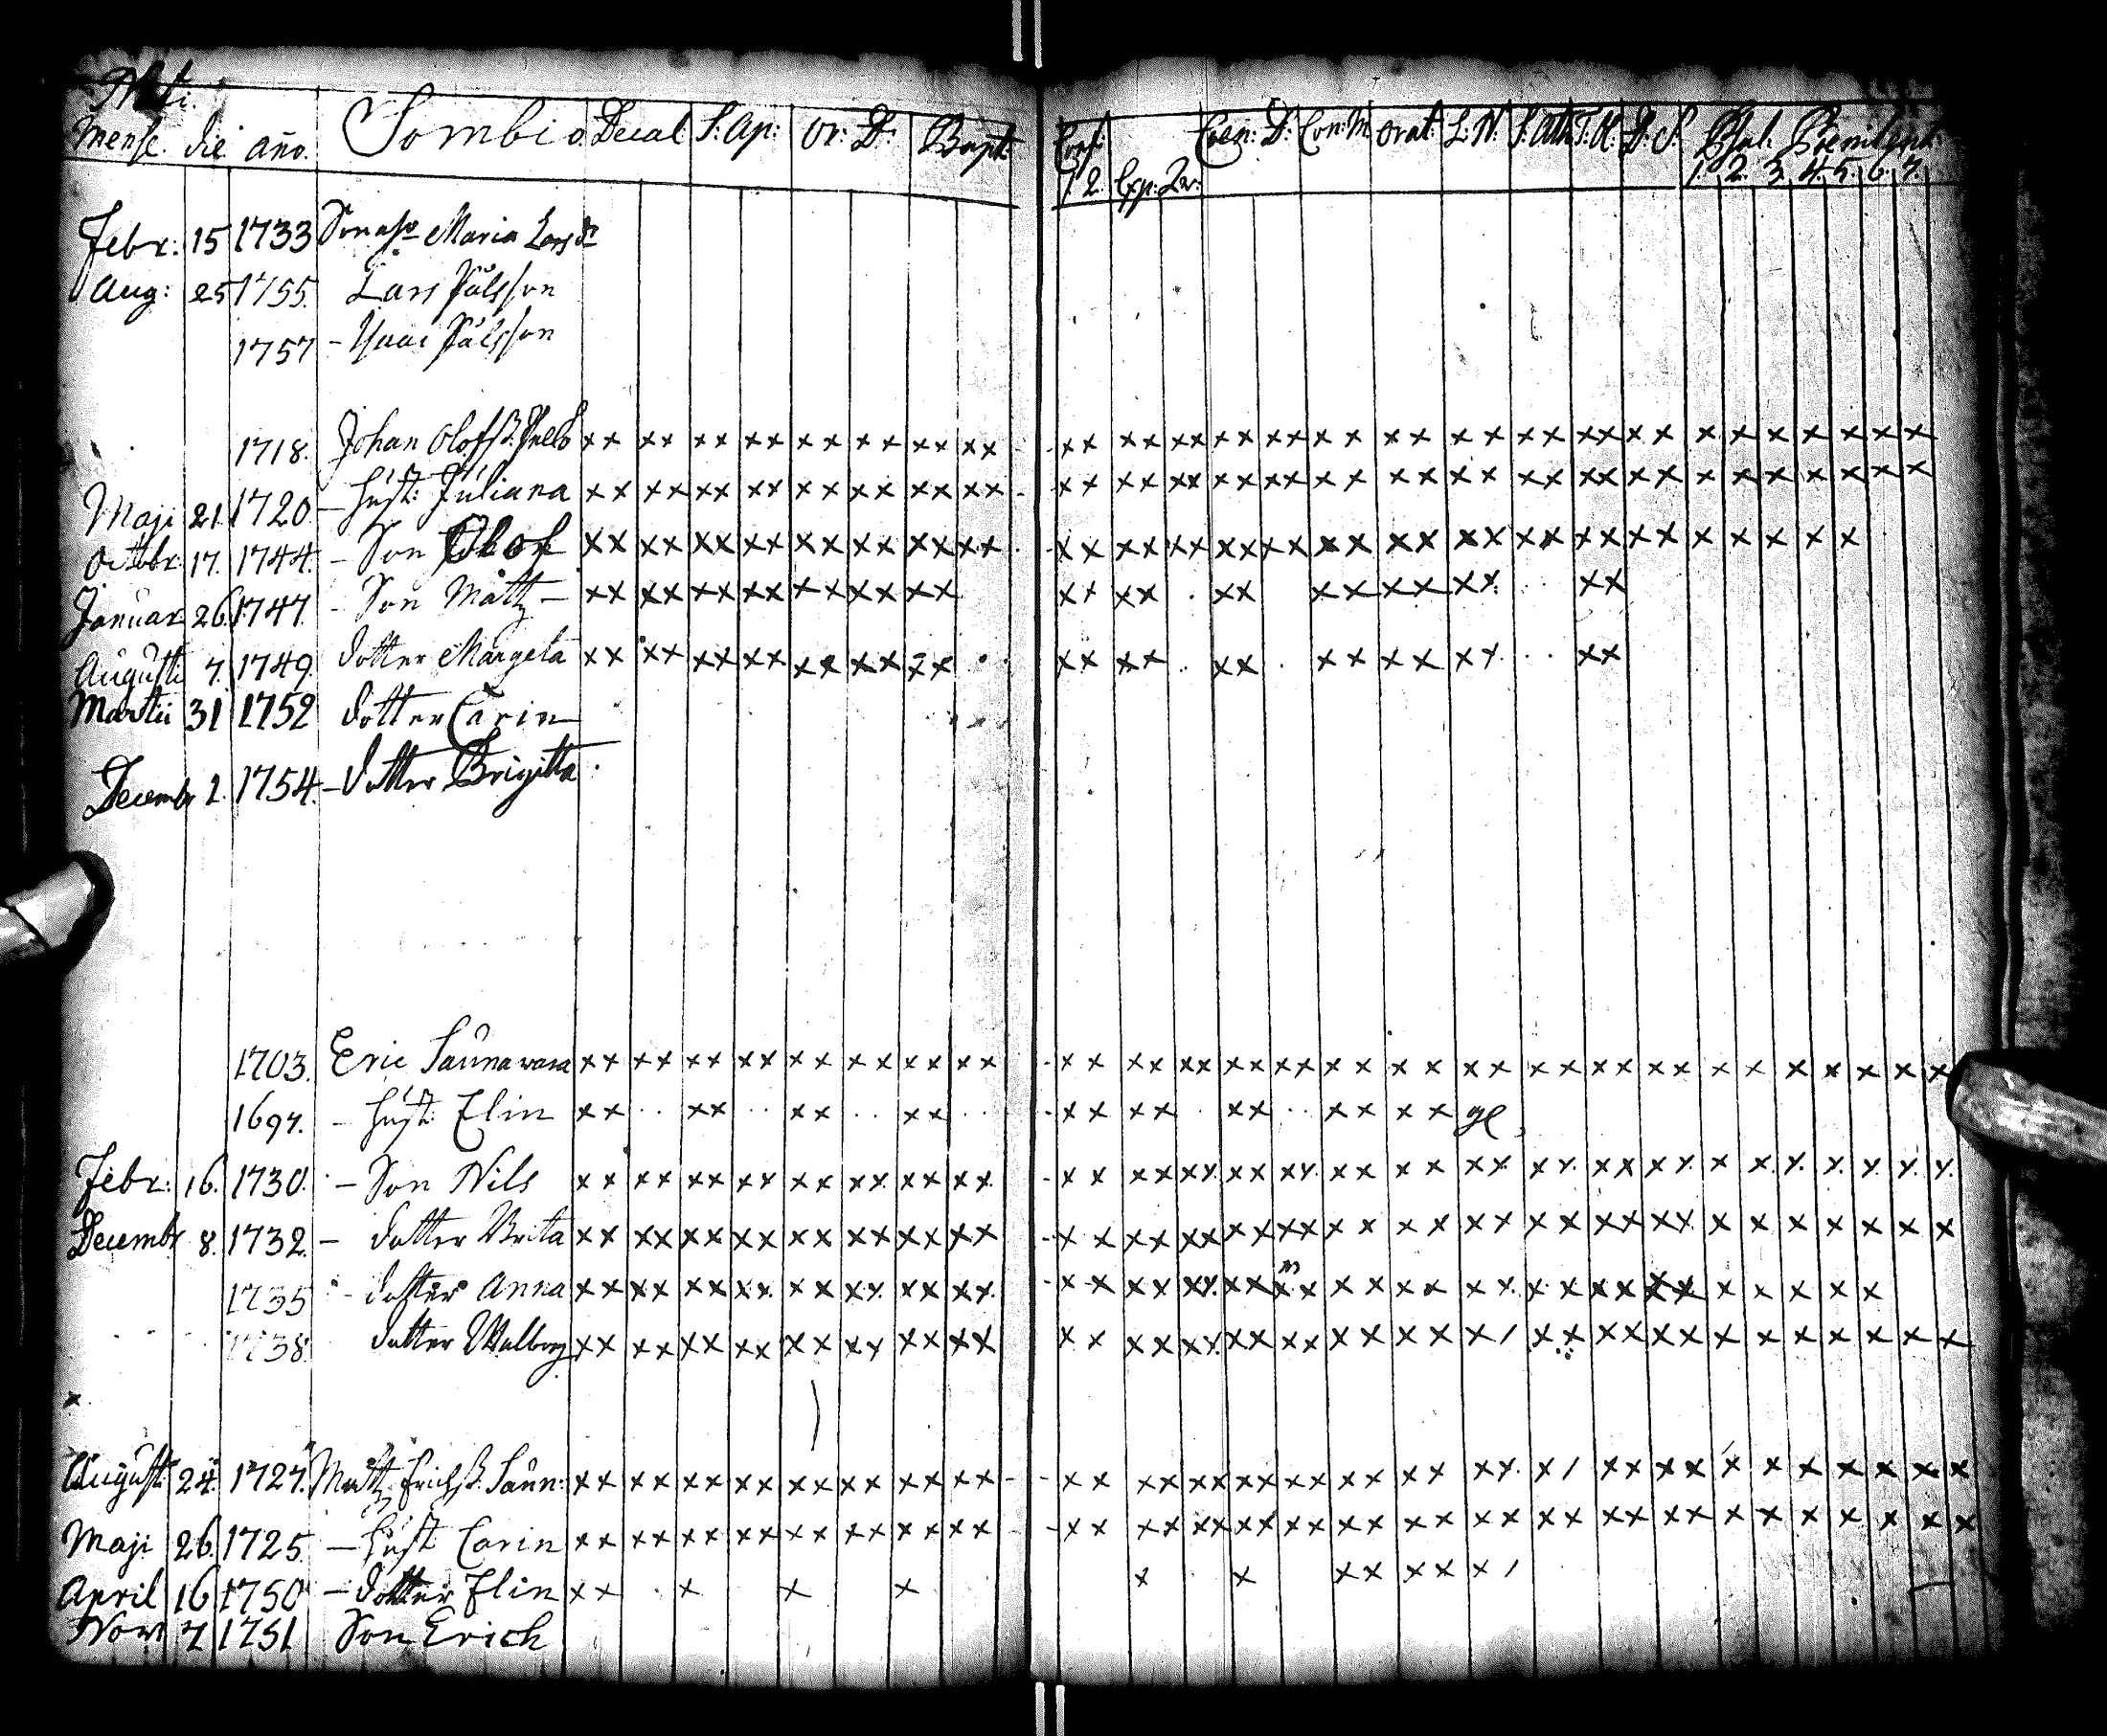 Nati
Mense. die año. Sombio. Decal: S: Ap: Or: D: Bapt: Conf: Coen: D: Con: M: Orat: L: N: S: Ath: T. H: D: S. Psal. Poenitent:
1 2 Exp: 2 v: 1. 2. 3. 4. 5. 6. 7.
Febr: 15 1733 Maria Larsdr
Aug: 25 1755. Lars Pålsson
1757 - Pålsson
1718. Johan Olofss.
Maji 21. 1720 - Hust: Juliana
Octobr. 17. 1744. - Son Olof
Januar. 26. 1747. - Son Mattz -
Augusti 7. 1749. dotter Margeta
Martii 31 1752 dotter Carin
Decemb 1. 1754. - dotter Brigitta.
1703. Eric Saunavara
1697. - Hust: Elin
Febr: 16. 1730. - Son Nils
Decembr 8. 1732. - dotter Brita
1735 - dotter Anna
1738. dotter Walborg
August: 24. 1727. Mattz Erichss. Saun:
Maji 26. 1725. - Hust Carin
April 16 1750 - dotter Elin
Novr 7 1751 Son Erich